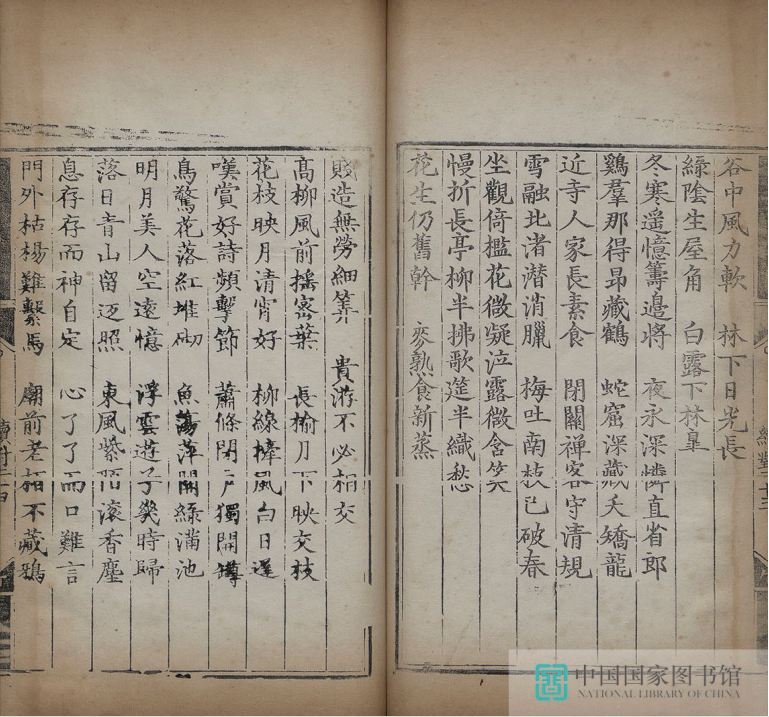 谷中風力軟　林下日光長
綠陰生屋角　白露下林臯
冬寒遥憶籌邊將　夜永深憐直省郎
鷄羣那得昻藏鶴　蛇窟深藏夭矯龍
近寺人家長素食　閉關禪客守清規
雪融北渚潜消臘　梅吐南枝已破春
坐觀倚檻花微凝泣露微含笑
慢折長亭柳半拂歌筵半織愁
花生仍舊幹　麥熟食新蒸
賤造無勞細筭　貴游不必相交
高柳風前摇宻葉　長榆月下映交枝
花枝映月清宵好　柳線摶風白日遲
嘆賞好詩頻擊節　蕭條閉戸獨開罇
鳥驚花落紅堆砌　魚蕩萍開綠滿池
明月美人空遠憶　浮雲遊子幾時歸
落日青山留返照　東風紫陌滚香塵
息存存而神自定　心了了而口難言
門外枯楊難繫馬　廟前老栢不藏鴉
中国国家图书馆
NATIONAL LIBRARY OF CHINA